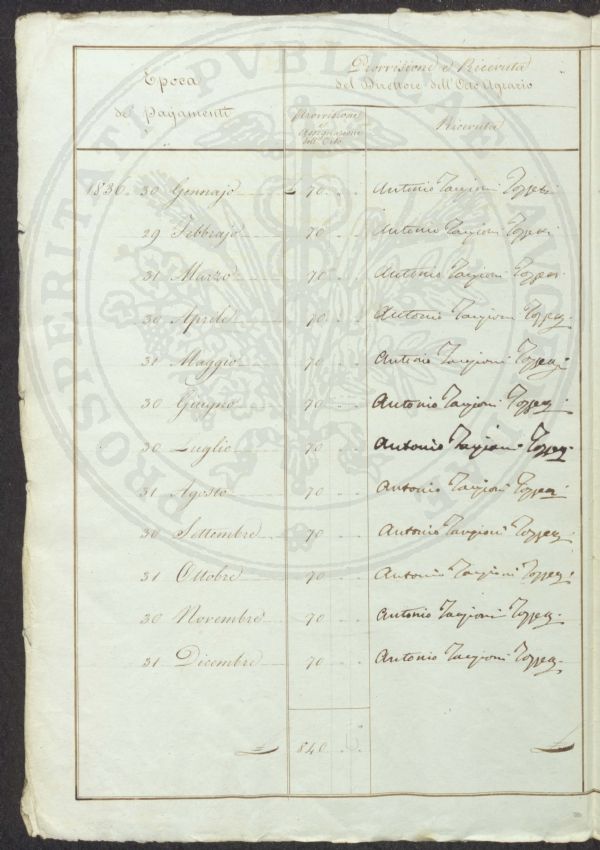 Epoca
de' Pagamenti
Provvisione e Ricevuta
del Direttore dell'Orto Agrario
Provvisione
e
Assegnazione
dell'Orto
Ricevuta
1836. 30 Gennajo £ 70 Antonio Targioni Tozzetti
29 Febbrajo 70 Antonio Targioni Tozzetti
31 Marzo 70 Antonio Targioni Tozzetti
30 Aprile 70 Antonio Targioni Tozzetti
31 Maggio 70 Antonio Targioni Tozzetti
30 Giugno 70 Antonio Targioni Tozzetti
30 Luglio 70 Antonio Targioni Tozzetti
31 Agosto 70 Antonio Targioni Tozzetti
30 Settembre 70 Antonio Targioni Tozzetti
31 Ottobre 70 Antonio Targioni Tozzetti
30 Novembre 70 Antonio Targioni Tozzetti
31 Dicembre 70 Antonio Targioni Tozzetti
£ 840 £
PROSPERITATI PUBLICAE